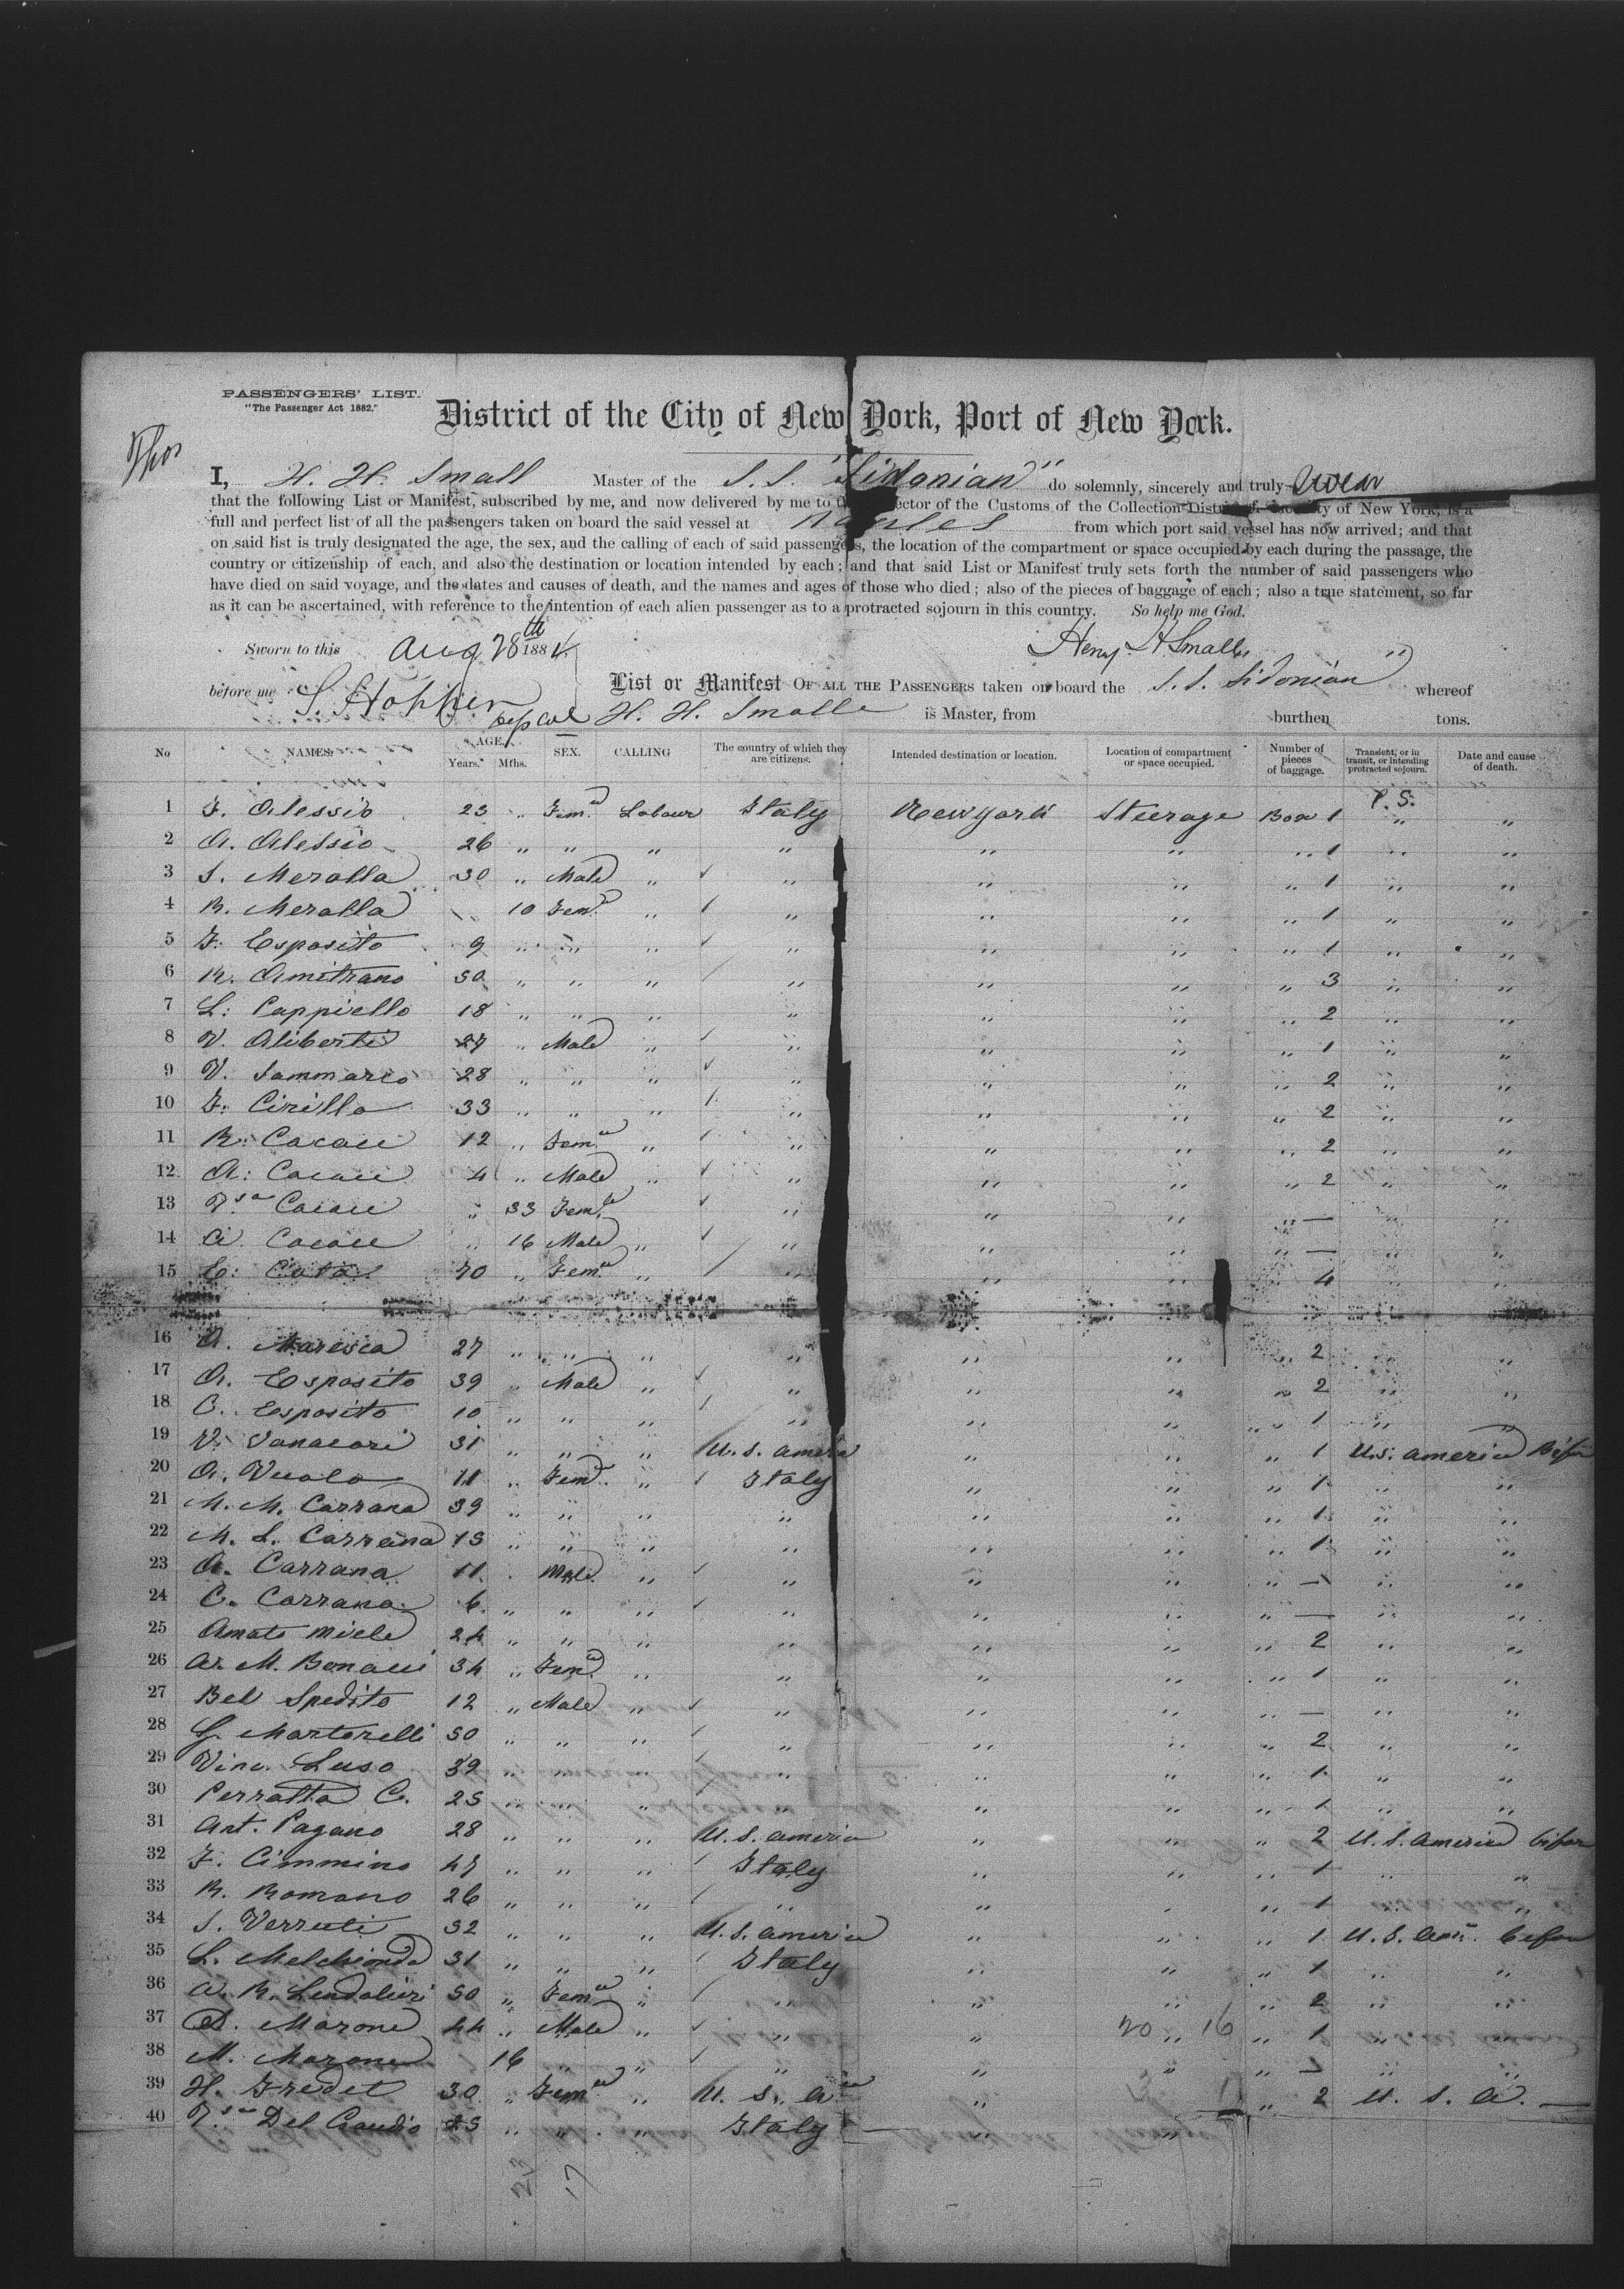 PASSENGERS' LIST.
"The Passenger Act 1882."
District of the City of New York, Port of New York.
I, H. H. Small Master of the S. S. "Sidonian" do solemnly, sincerely and truly swear
that the following List or Manifest, subscribed by me, and now delivered by me to ector of the Customs of the Collection District of ty of New York, is a
full and perfect list of all the passengers taken on board the said vessel at Naples from which port said vessel has now arrived; and that
on said list is truly designated the age, the sex, and the calling of each of said passengers, the location of the compartment or space occupied by each during the passage, the
country or citizenship of each, and also the destination or location intended by each; and that said List or Manifest truly sets forth the number of said passengers who
have died on said voyage, and the dates and causes of death, and the names and ages of those who died; also of the pieces of baggage of each; also a true statement, so far
as it can be ascertained, with reference to the intention of each alien passenger as to a protracted sojourn in this country. So help me God.
Sworn to this Aug 28th 1884 Henry H Small
before me List or Manifest OF ALL THE PASSENGERS taken on board the S. S. Sidonian" whereof
H. H. Small is Master, from burthen tons.
No NAMES AGE. Years. Mths. SEX. CALLING The country of which they are citizens. Intended destination or location. Location of compartment or space occupied. Number of pieces of baggage. Transient, or in transit, or intending protracted sojourn. Date and cause of death.
P. S.
1 F. Alessio 23 " Fem. Labour Italy New York Steerage Box 1 " "
2 A. Alessio 26 " " " " " " " 1 " "
3 S. Merolla 30 " Male " " " " " 1 " "
4 R. Merolla " 10 Fem. " " " " " 1 " "
5 F. Esposito 9 " " " " " " " 1 " "
6 R. Amitrano 50 " " " " " " " 3 " "
7 L. Cappiello 18 " " " " " " " 2 " "
8 V. Aliberti 27 " Male " " " " " 1 " "
9 V. Sammarco 28 " " " " " " " 2 " "
10 F. Cirillo 33 " " " " " " " 2 " "
11 R. Cacace 12 " Fem. " " " " " 2 " "
12 A. Cacace 4 " Male " " " " " 2 " "
13 Cacace " 33 Fem. " " " " — " "
14 Cacace " 16 Male " " " " " — " "
15 70 " Fem. " " " " " 4 " "
16 Maresca 27 " " " " " " " 2 " "
17 A. Esposito 39 " Male " " " " " 2 " "
18 C. Esposito 10 " " " " " " " 1 " "
19 V. Vanacori 31 " " " U. S. America " " " 1 U.S. America
20 A. Vuolo 11 " Fem. " Italy " " " 1 " "
21 M. M. Carrana 39 " " " " " " " 1 " "
22 M. L. Carrana 13 " " " " " " " 1 " "
23 A. Carrana 11 Male " " " " " — " "
24 C. Carrana 6 " " " " " " " — " "
25 Amato Miele 24 " " " " " " " 2 " "
26 M. Bonacci 34 " Fem. " " " " " 1 " "
27 Bel Spedito 12 " Male " " " " " — " "
28 G. Martorelli 50 " " " " " " " 2 " "
29 Vinc. Luso 39 " " " " " " " 1 " "
30 Perratta C. 25 " " " " " " " 1 " "
31 Ant. Pagano 28 " " " U. S. America " " " 2 U. S. America before
32 F. Cimmino 47 " " " Italy " " " 1 " "
33 R. Romano 26 " " " " " " " 1
34 S. Verruti 32 " " " U. S. America " " " 1 U. S. Am. before
35 L. Melchionda 31 " " " Italy " " " 1 " "
36 A. R. 50 " Fem. " " " " " 2 " "
37 Marone 44 " Male " " " 20 " 16 " 1 "
38 M. Marone 16 " " " " " " " "
39 H. Fredet 30 " Fem. " U. S. A. " " 2 U. S. A. —
40 Del Gaudio 25 " " " Italy — " "
23 17